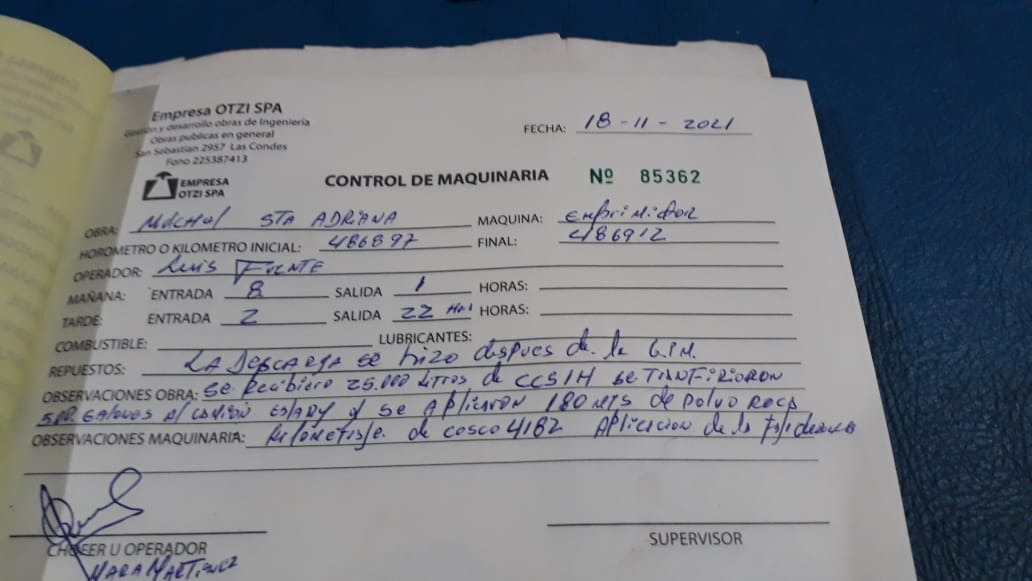 Empresa OTZI SPA
Gestión y desarrollo obras de Ingeniería
Obras publicas en general
San Sebastian 2957 Las Condes
Fono 225387413
EMPRESA
OTZI SPA
FECHA: 18-11-2021
CONTROL DE MAQUINARIA Nº 85362
OBRA: STA ADRIANA MAQUINA: EMPriMidor
HOROMETRO O KILOMETRO INICIAL: 486897 FINAL: 486912
OPERADOR: Luis FUENTE
MAÑANA: ENTRADA 8 SALIDA 1 HORAS:
TARDE: ENTRADA 2 SALIDA 22 HORAS:
COMBUSTIBLE: LUBRICANTES:
REPUESTOS: LA DESCARGA se hizo dispues de. la
OBSERVACIONES OBRA: se Recibiero 25.000 Litros de
GALONES Al CAMION y se APlicAron 180 MTS de Polvo ROCA
OBSERVACIONES MAQUINARIA: de 4182 APlicacion de la
CHOFER U OPERADOR
MARTINEZ
SUPERVISOR